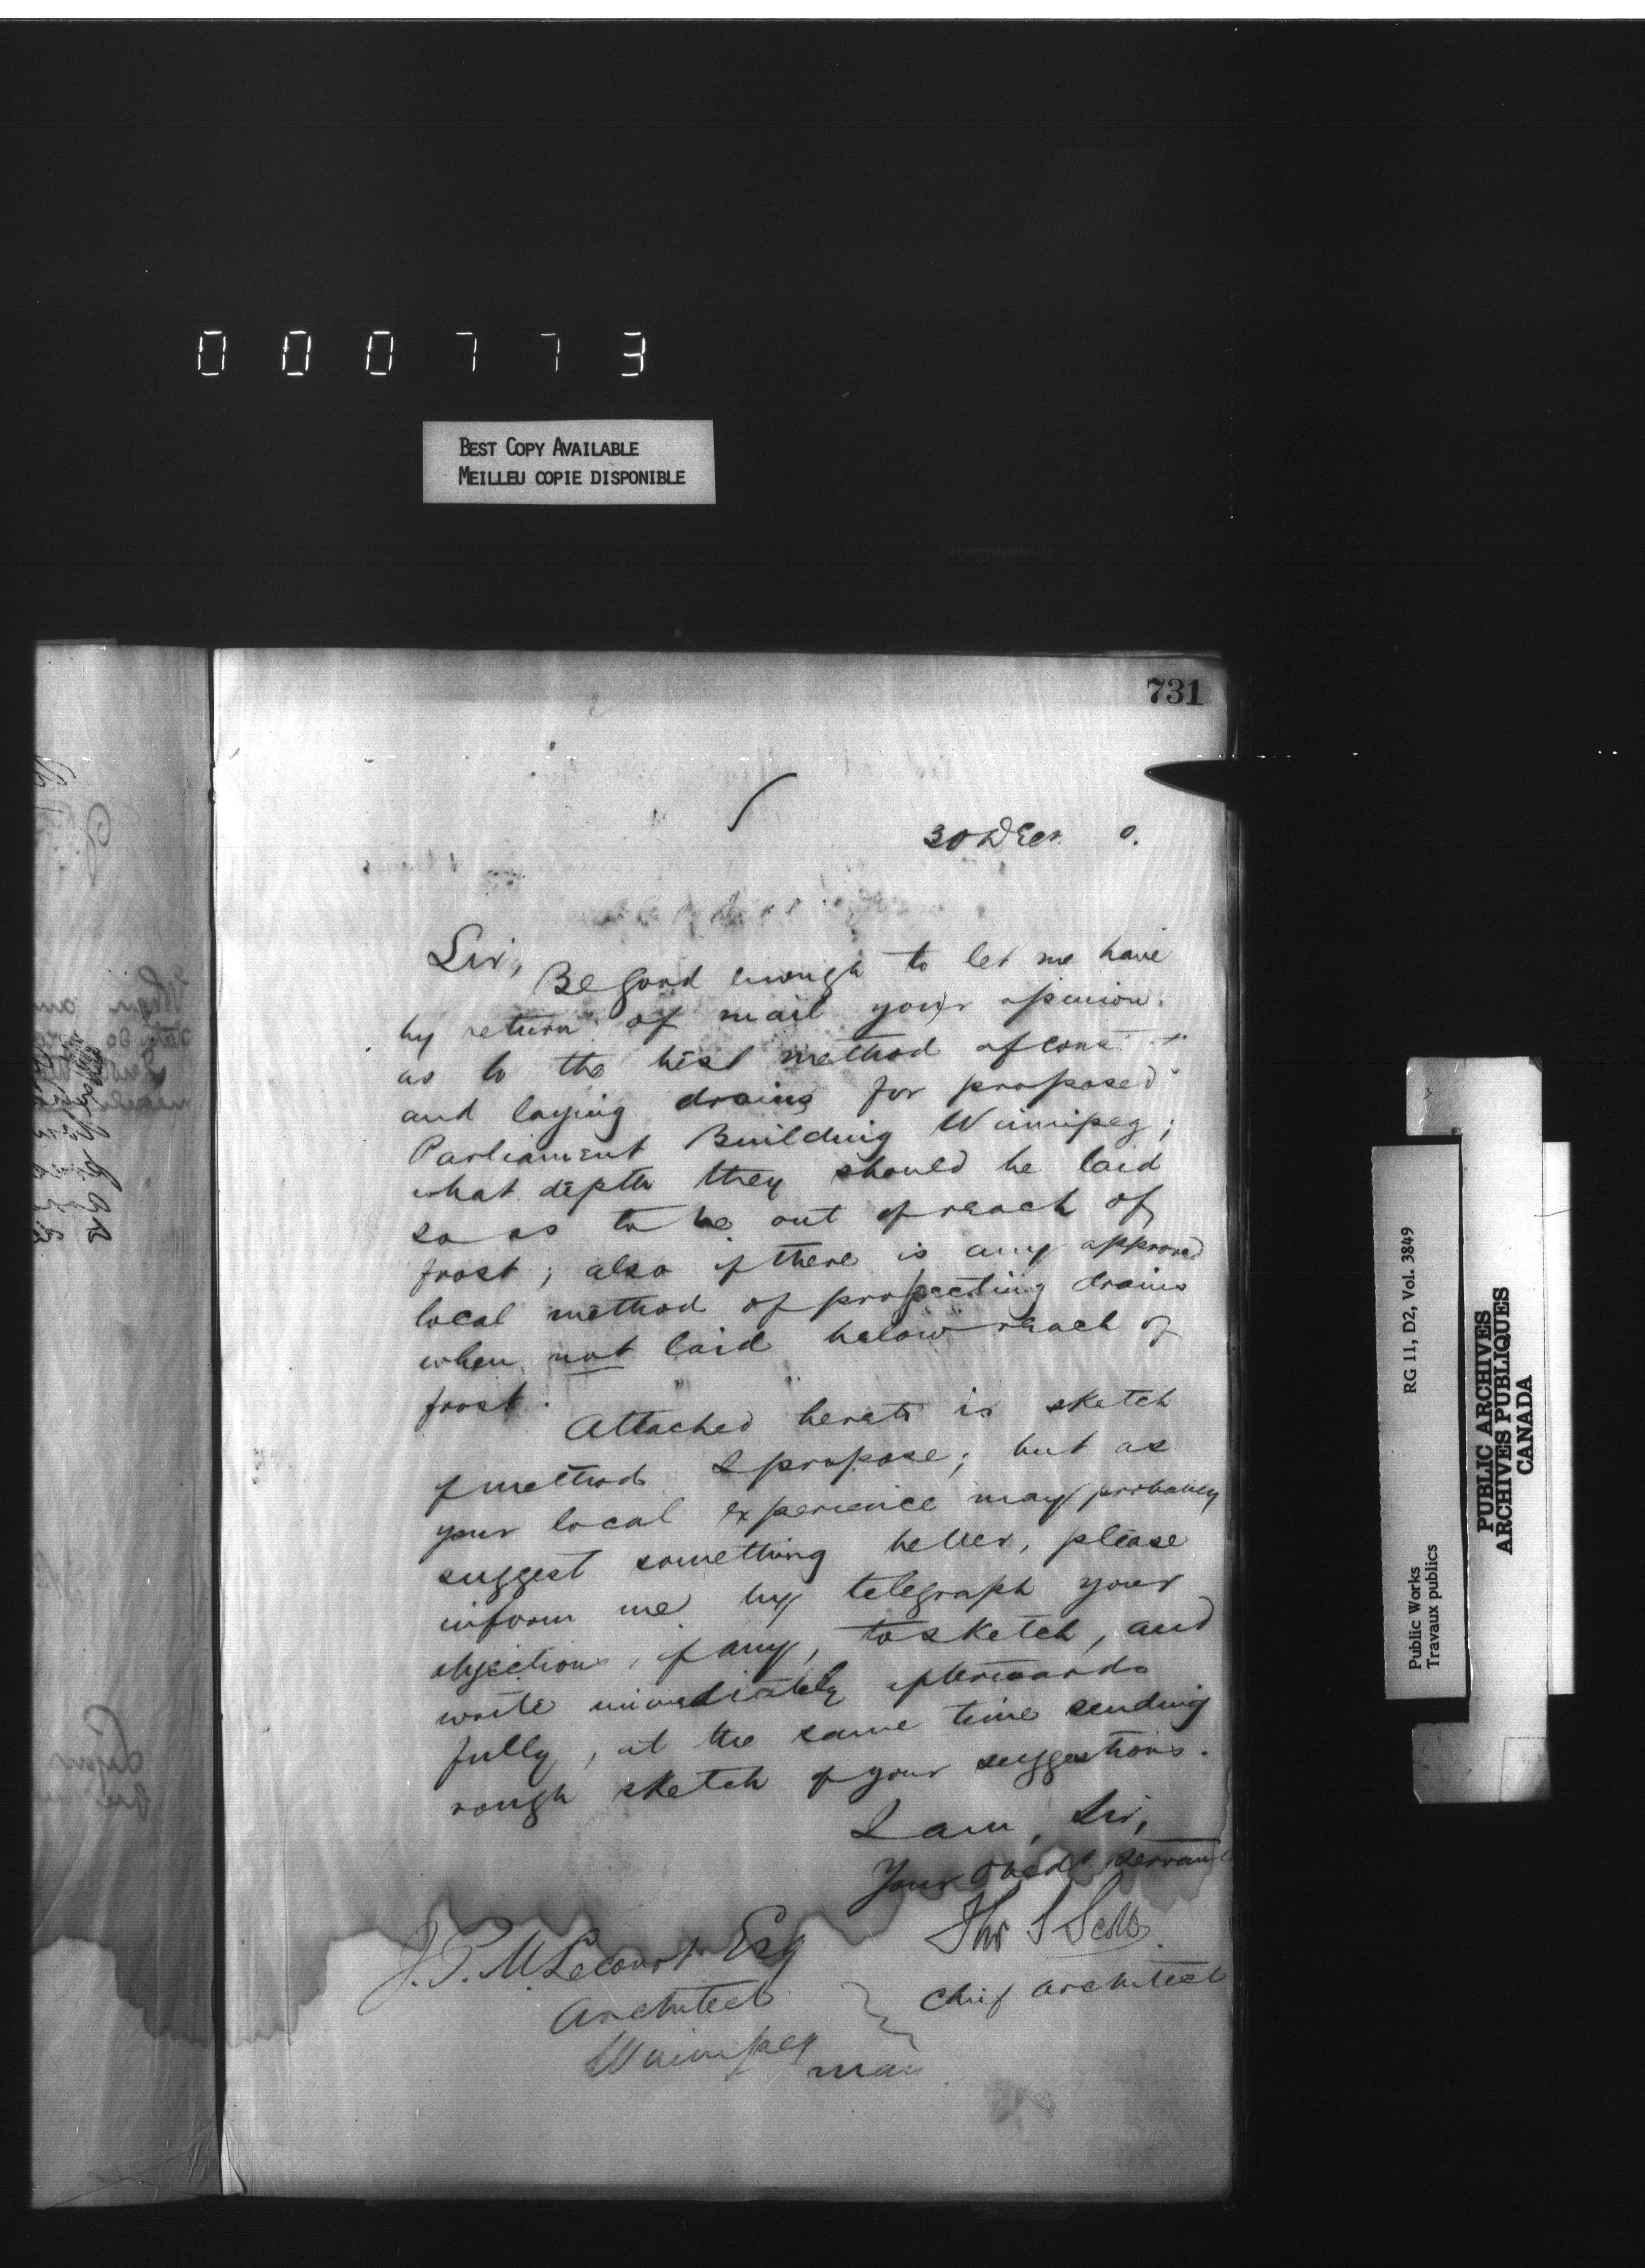 000773
BEST COPY AVAILABLE
MEILLEU COPIE DISPONIBLE
731
30 Decr. 0.
Sir,
Be good enough to let me have
by return of mail your opinion
as to the best method of cons
and laying drains for proposed
Parliament Building Winnipeg;
what depth they should be laid
so as to be out of reach of
frost; also if there is any approved
local method of protecting drains
when not laid below reach of
frost.
Attached hereto is sketch
of method I propose; but as
your local experience may probably
suggest something better, please
inform me by telegraph your
objections, if any, to sketch, and
write immediately afterwards
fully, at the same time sending
rough sketch of your suggestions.
I am, Sir,
Your obedt servant
Thos S Scott
Chief Architect
J. P. M. Lecourt Esq
Architect
Winnipeg
Man
RG 11, D2, Vol. 3849
Public Works
Travaux publics
PUBLIC ARCHIVES
ARCHIVES PUBLIQUES
CANADA